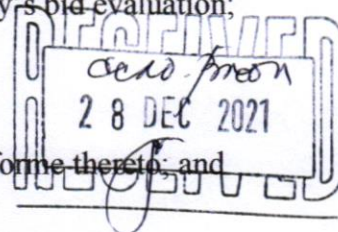 y's bid evaluation;
RECEIVED
28 DEC 2021
forme thereto; and